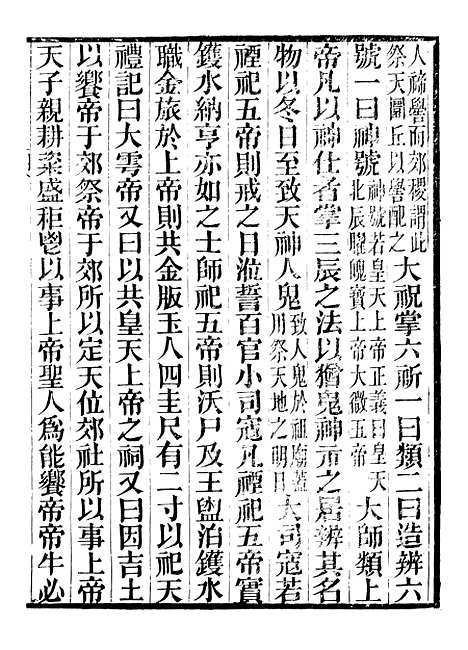 人禘嚳而郊稷謂此祭天圜丘以嚳配之大祝掌六祈一曰類二曰造辨六
號一曰神號神號若皇天上帝正義曰皇天北辰曜魄寶上帝大微五帝大師類上
帝凡以神仕者掌三辰之法以猶鬼神示之居辨其名
物以冬日至致天神人鬼致人鬼於祖廟蓋用祭天地之明日大司寇若
禋祀五帝則戒之日涖誓百官小司寇凡禋祀五帝實
鑊水納亨亦如之士師祀五帝則沃尸及王盥洎鑊水
職金旅於上帝則共金版玉人四圭尺有二寸以祀天
禮記曰大雩帝又曰以共皇天上帝之祠又曰因吉土
以饗帝于郊祭帝于郊所以定天位郊社所以事上帝
天子親耕粢盛秬鬯以事上帝聖人爲能饗帝帝牛必